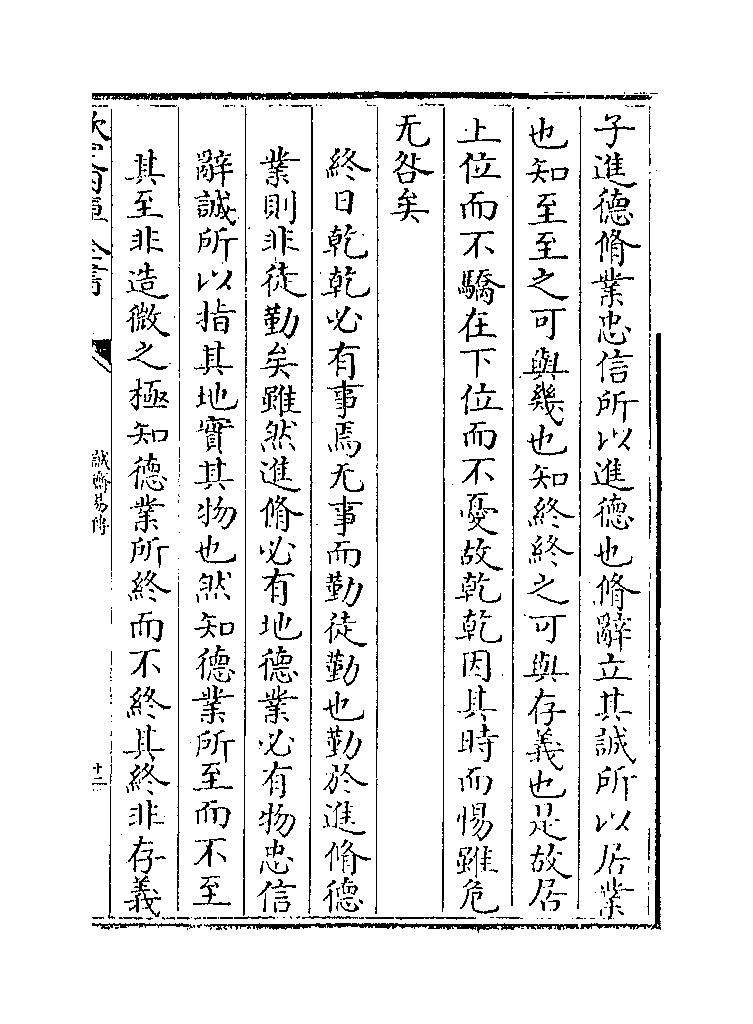 子進德脩業忠信所以進德也脩辭立其誠所以居業
也知至至之可與幾也知終終之可與存義也是故居
上位而不驕在下位而不憂故乾乾因其時而惕雖危
无咎矣
終日乾乾必有事焉无事而勤徒勤也勤於進脩德
業則非徒勤矣雖然進脩必有地德業必有物忠信
辭誠所以指其地實其物也然知德業所至而不至
其至非造微之極知德業所終而不終其終非存義
欽定四庫全書
誠齋易傳
十二